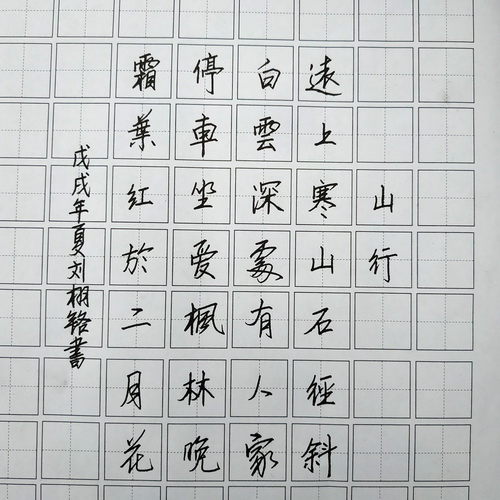 山行
遠上寒山石徑斜
白雲深處有人家
停車坐爱楓林晚
霜葉紅於二月花
戊戌年夏刘栩铭書